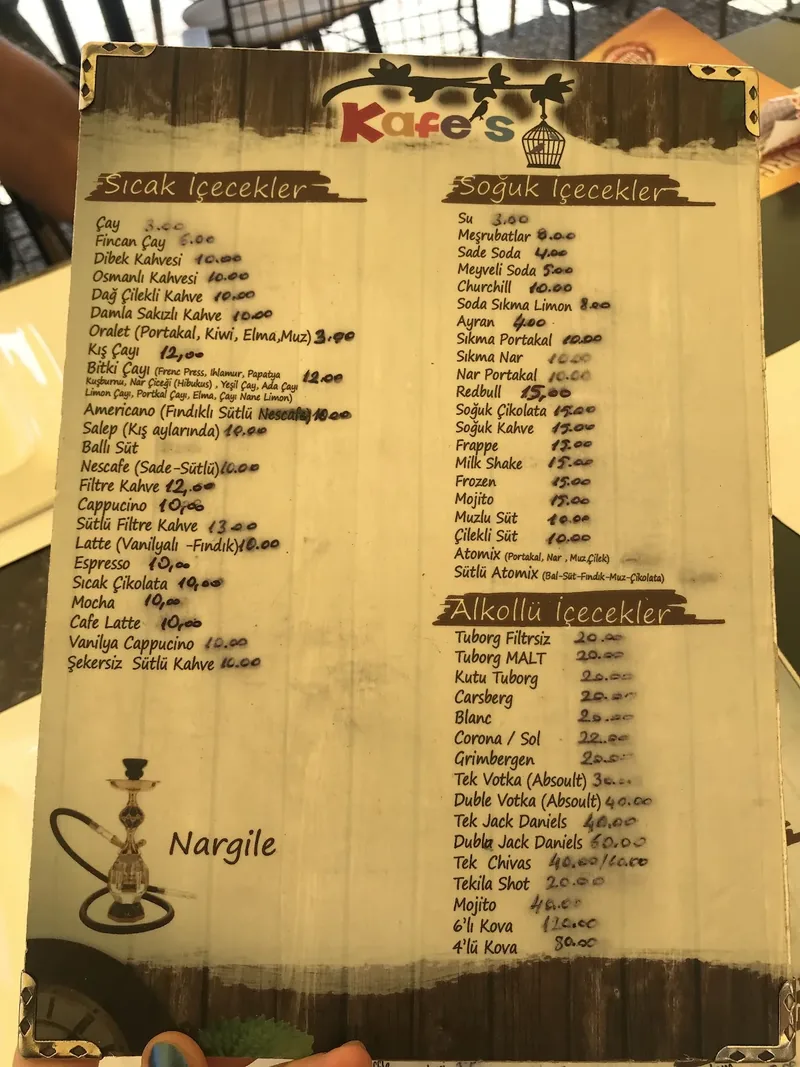 Kafe's
Sıcak İçecekler
Çay 3.00
Fincan Çay 6.00
Dibek Kahvesi 10.00
Osmanlı Kahvesi 10.00
Dağ Çilekli Kahve 10.00
Damla Sakızlı Kahve 10.00
Oralet (Portakal, Kiwi, Elma,Muz) 3.00
Kış Çayı 12,00
Bitki Çayı (Frenc Press, Ihlamur, Papatya
Kuşburnu, Nar Çiçeği (Hibukus) , Yeşil Çay, Ada Çayı
Limon Çayı, Portkal Çayı, Elma, Çayı Nane Limon) 12.00
Americano (Fındıklı Sütlü Nescafe) 10.00
Salep (Kış aylarında) 10.00
Ballı Süt
Nescafe (Sade-Sütlü) 10.00
Filtre Kahve 12,00
Cappucino 10,00
Sütlü Filtre Kahve 13.00
Latte (Vanilyalı -Fındık) 10.00
Espresso 10,00
Sıcak Çikolata 10,00
Mocha 10,00
Cafe Latte 10,00
Vanilya Cappucino 10.00
Şekersiz Sütlü Kahve 10.00
Nargile
Soğuk İçecekler
Su 3.00
Meşrubatlar 8.00
Sade Soda 4.00
Meyveli Soda 5.00
Churchill 10.00
Soda Sıkma Limon 8.00
Ayran 4.00
Sıkma Portakal 10.00
Sıkma Nar 10.00
Nar Portakal 10.00
Redbull 15,00
Soğuk Çikolata 15.00
Soğuk Kahve 15.00
Frappe 15.00
Milk Shake 15.00
Frozen 15.00
Mojito 15.00
Muzlu Süt 10.00
Çilekli Süt 10.00
Atomix (Portakal, Nar , Muz,Çilek)
Sütlü Atomix (Bal-Süt-Fındık-Muz-Çikolata)
Alkollü İçecekler
Tuborg Filtrsiz 20.00
Tuborg MALT 20.00
Kutu Tuborg 20.00
Carsberg 20.00
Blanc 20.00
Corona / Sol 22.00
Grimbergen 20.00
Tek Votka (Absoult) 30.00
Duble Votka (Absoult) 40.00
Tek Jack Daniels 40.00
Dubla Jack Daniels 60.00
Tek Chivas 40.00/60.00
Tekila Shot 20.00
Mojito 40.00
6'lı Kova 120.00
4'lü Kova 80.00